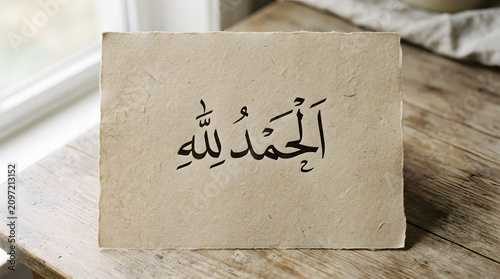 اَلْحَمْدُ لِلّٰهِ
Adobe Stock | #2097213152